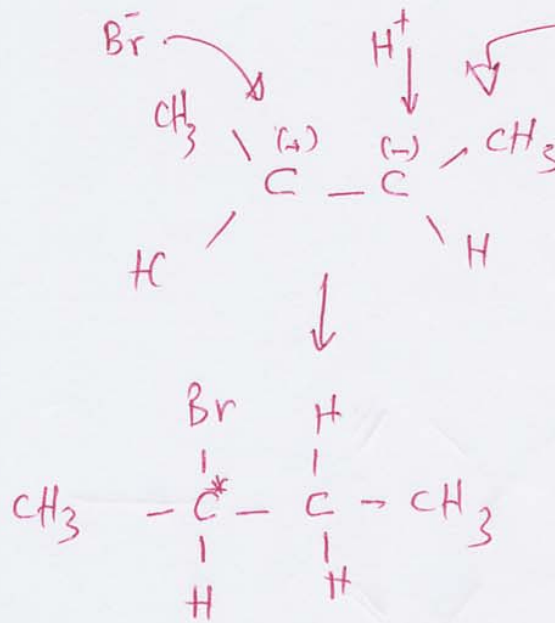 Br⁻ H⁺
CH₃ (+) (−) CH₃
C – C
H H
Br H
CH₃ – C* – C – CH₃
H H